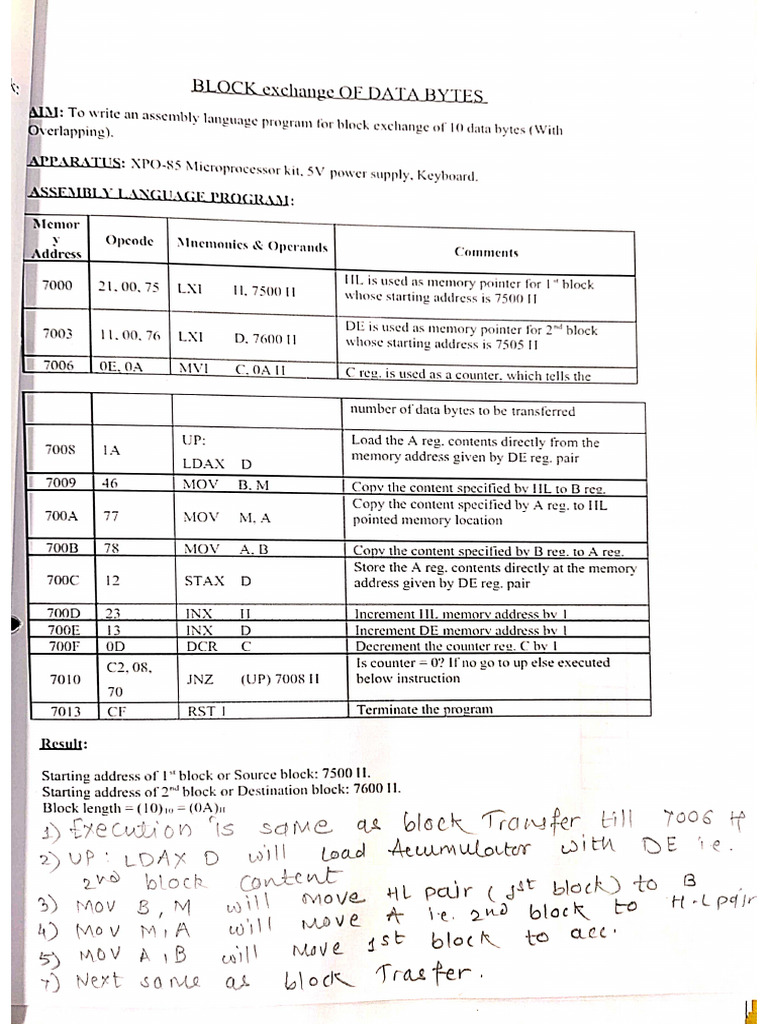 BLOCK exchange OF DATA BYTES
AIM: To write an assembly language program for block exchange of 10 data bytes (With
Overlapping).
APPARATUS: XPO-85 Microprocessor kit, 5V power supply, Keyboard.
ASSEMBLY LANGUAGE PROGRAM:
Memor
y
Address Opcode Mnemonics & Operands Comments
7000 21, 00, 75 LXI H, 7500 H HL is used as memory pointer for 1st block
whose starting address is 7500 H
7003 11, 00, 76 LXI D, 7600 H DE is used as memory pointer for 2nd block
whose starting address is 7505 H
7006 0E, 0A MVI C, 0A H C reg. is used as a counter, which tells the
number of data bytes to be transferred
7008 1A UP:
LDAX D Load the A reg. contents directly from the
memory address given by DE reg. pair
7009 46 MOV B, M Copy the content specified by HL to B reg.
700A 77 MOV M, A Copy the content specified by A reg. to HL
pointed memory location
700B 78 MOV A, B Copy the content specified by B reg. to A reg.
700C 12 STAX D Store the A reg. contents directly at the memory
address given by DE reg. pair
700D 23 INX H Increment HL memory address by 1
700E 13 INX D Increment DE memory address by 1
700F 0D DCR C Decrement the counter reg. C by 1
7010 C2, 08,
70 JNZ (UP) 7008 H Is counter = 0? If no go to up else executed
below instruction
7013 CF RST 1 Terminate the program
Result:
Starting address of 1st block or Source block: 7500 H.
Starting address of 2nd block or Destination block: 7600 H.
Block length = (10)10 = (0A)H
1) Execution is same as block Transfer till 7006 H
2) UP: LDAX D will Load Accumulator with DE i.e.
2nd block content
3) MOV B, M will move HL pair (1st block) to B
4) MOV M, A will move A i.e. 2nd block to H-L pair
5) MOV A, B will Move 1st block to acc.
7) Next same as block Trasfer.